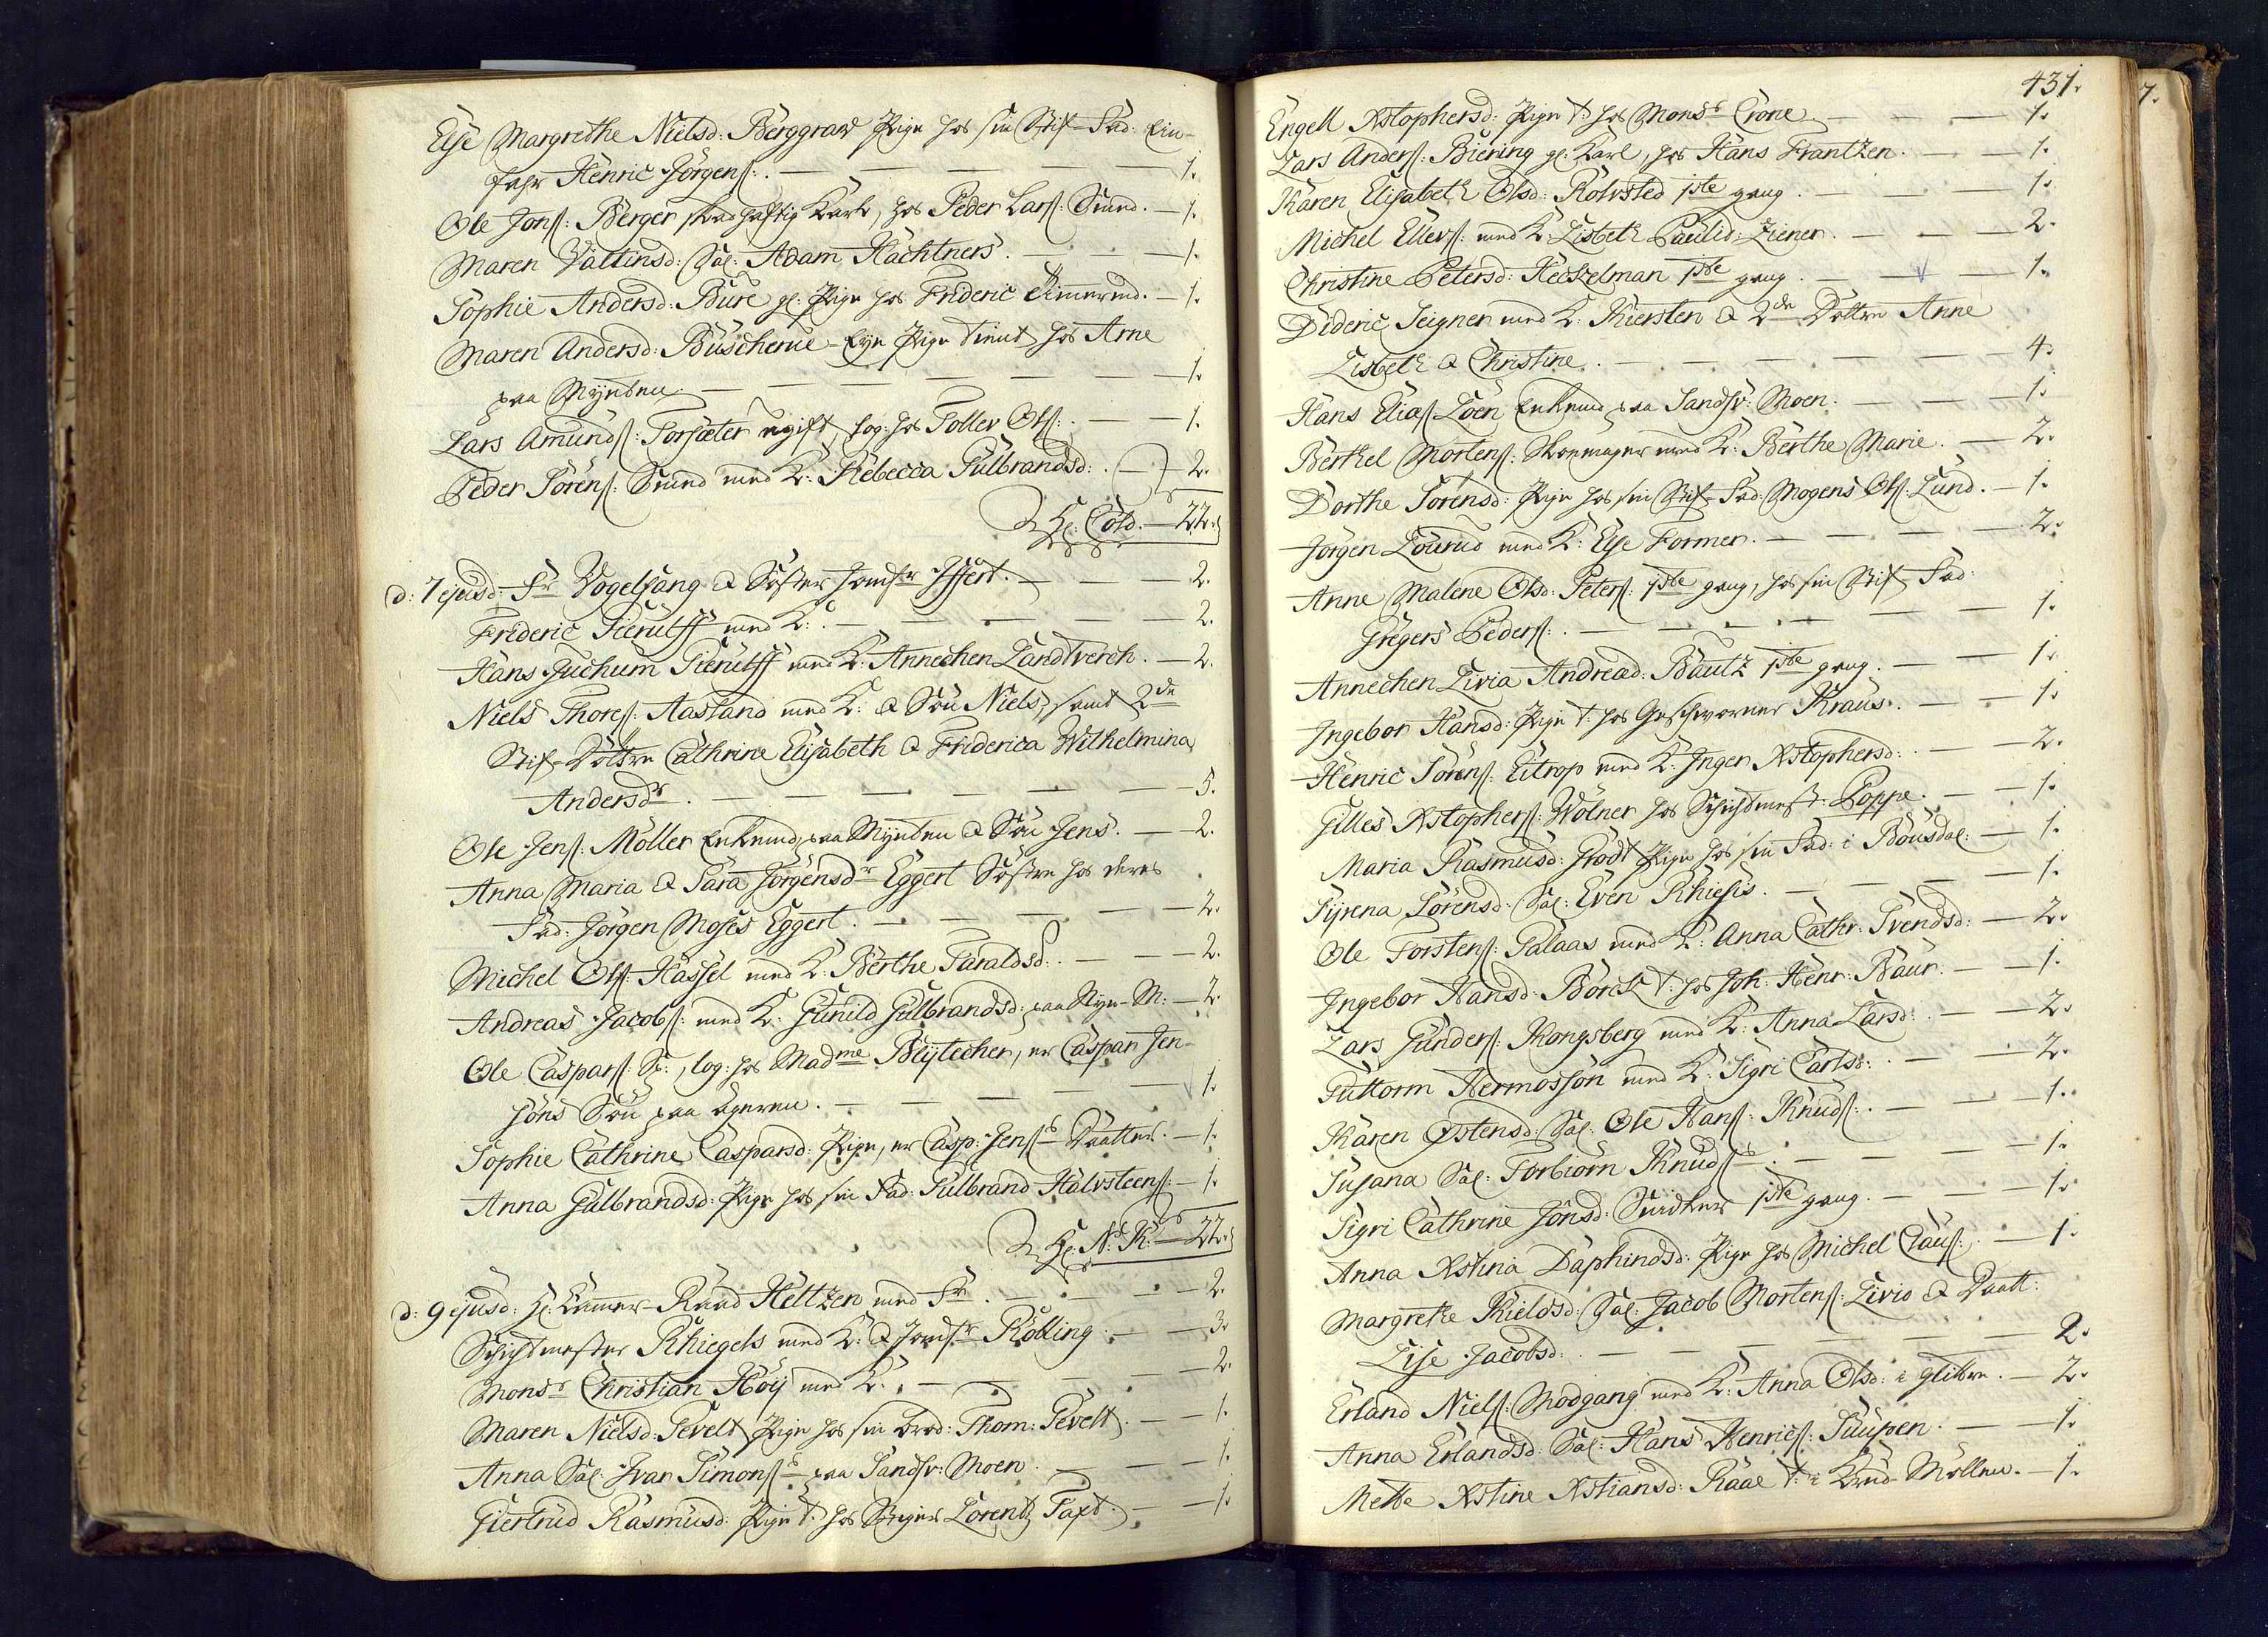 Else Margrethe Nielsd: Berggraw Pige hos sin Stif-Fad: Ein-
fahr Henric Jörgenſ: . — — — — 1.
Ole Jonſ: Berger skadhaftig Karl, hos Peder Larſ: Smed. — 1.
Maren Valtinsd: Sal: Adam Hachtners . — — — 1.
Sophie Andersd: Bure gl: Pige hos Frideric Timmermd. — 1.
Maren Andersd: Buscherue - Eye Pige tient hos Arne
paa Mynten. — — — — — — 1.
Lars Amundſ: Torsæter ugift, log: hos Tollev Olſ: . — — 1.
Peder Sörenſ: Smed med K: Rebecca Gulbrandsd: . — 2.
Hr: Cold. — 22.
d: 7 ejusd: Fr Vogelsang & Söster Jomfr Iffert. — — — 2.
Frideric Sierulff med K: . — — — — 2.
Hans Juchum Sierulff med K: Annechen Landtverch. — 2.
Niels Thoreſ: Aasland med K: & Sön Niels, samt 2de
Stif-Döttre Cathrine Elisabeth & Friderica Wilhelmina
Andersdr . — — — — — — 5.
Ole Jenſ: Möller Enkemd paa Mynten & Sön Jens. — 2.
Anna Maria & Sara Jörgensdr Eggert Söstre hos deres
Fad: Jörgen Moses Eggert . — — — — 2.
Michel Olſ: Hassel med K: Berthe Taraldsd: . — — — 2.
Andreas Jacobſ: med K: Gunild Gulbrandsd: paa Nye-M: — 2.
Ole Casparſ: S:, log: hos Madme Bleytecher, er Caspar Jen-
söns Sön paa Ageren. — — — — 1.
Sophie Cathrine Caspersd: Pige, er Casp: Jenſs Daatter. — 1.
Anna Gulbrandsd: Pige hos sin Fad: Gulbrand Halvsteenſ: — 1.
Hr: N: K: — 22.
d: 9 ejusd: Hr: Cammer-Raad Heltzen med Fr . — — — 2.
Schichtmester Rhiegels med K: & Jomfr Rölling . — — 3.
Monsr Christian Höy med K: . — — — 2.
Maren Nielsd: Tevelt Pige hos sin Brod: Thom: Tevelt. — — 1.
Anna Sal: Ivar Simonſs paa Sandsv: Moen . — — — 1.
Giertrud Rasmusd: Pige t: hos Steiger Lorentz Faxt. — — 1.
431.
7.
Engell Xstophersd: Pige t: hos Monsr Crone . — — — 1.
Lars Anderſ: Biering gl: Karl, hos Hans Frantzen. — — 1.
Karen Elisabeth Olsd: Rolvsted 1ste gang . — — — 1.
Michel Ellevſ: med K: Lisbeth Paulid: Ziener. — — — 2.
Christine Petersd: Heckelman 1ste gang . — — — 1.
Dideric Seigner med K: Kiersten & 2de Döttre Anne
Lisbeth & Christine . — — — — — 4.
Hans Eliæſ: Loen Enkemd paa Sandsv: Moen. — — — 1.
Berthel Mortenſ: Skoemager med K: Berthe Marie. — 2.
Dorthe Sörensd: Pige hos sin Stif-Fad: Mogens Olſ: Lund. — 1.
Jörgen Lourud med K: Else Former. — — — — 2.
Anne Malene Olsd: Peterſ: 1ste gang, hos sin Stif-Fad:
Gregers Pederſ: . — — — — — 1.
Annechen Livia Andread: Bautz 1ste gang. — — 1.
Ingebor Hansd: Pige t: hos Geschworner Kraus. — — 1.
Henric Sörenſ: Eitrop med K: Inger Xstophersd: . — — 2.
Gilles Xstopherſ: Wolner hos Schichtmest: Poppe. — — 1.
Maria Rasmusd: Grodt Pige hos sin Fad: i Bousdal: — 1.
Syrena Sörensd: Sal: Even Rhiess . — — — — 1.
Ole Torstenſ: Palaas med K: Anna Cathr: Svendsd: — 2.
Ingebor Hansd: Borck t: hos Joh: Henr: Baur. — — 1.
Lars Gunderſ: Kongsberg med K: Anna Larsd: . — — 2.
Guttorm Hermossön med K: Sigri Carlsd: . — — 2.
Karen Østensd: Sal: Ole Hanſ: Knudſ: . — — — 1.
Susana Sal: Torbiörn Knudſs . — — — — 1.
Sigri Cathrine Jönsd: Snidker 1ste gang. — — — 1.
Anna Xstina Daphindsd: Pige hos Michel Clauſ: . — 1.
Margrethe Kieldsd: Sal: Jacob Mortenſ: Livio & Daatt:
Lise Jacobsd: . — — — — — 2.
Erland Nielſ: Modgang med K: Anna Olsd: i Glitre. — 2.
Anna Erlandsd: Sal: Hans Henricſ: Suupen. — — 1.
Mette Xstine Xstiansd: Raae t: i Brud-Möllen. — 1.